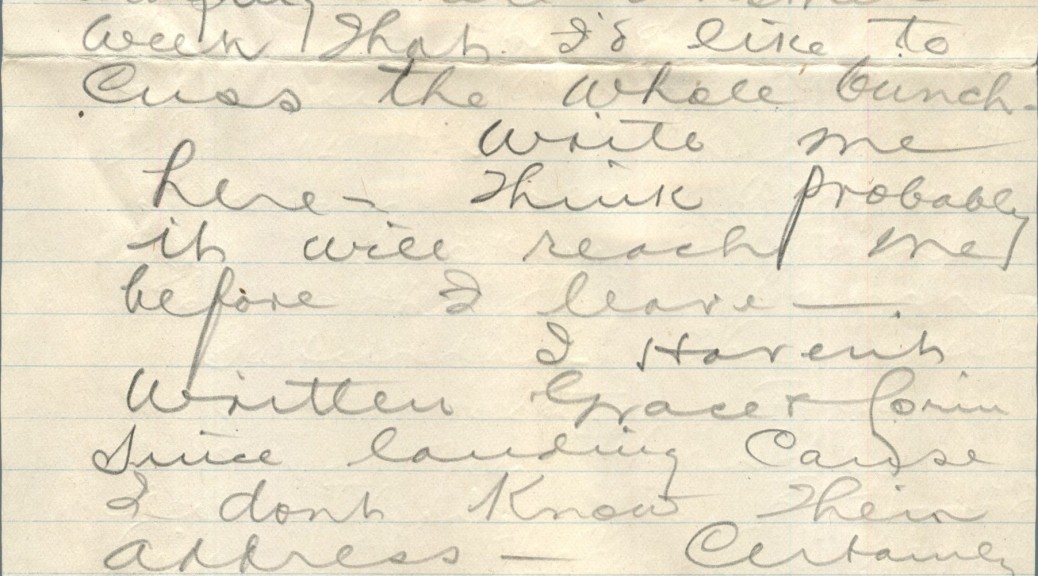 week that I'd like to
Cuss the whole bunch-
write me
here- Think probably
it will reach me
before I leave —.
I Haven't
Written Grace &
Since landing Cause
I dont Know Their
Address — Certainly